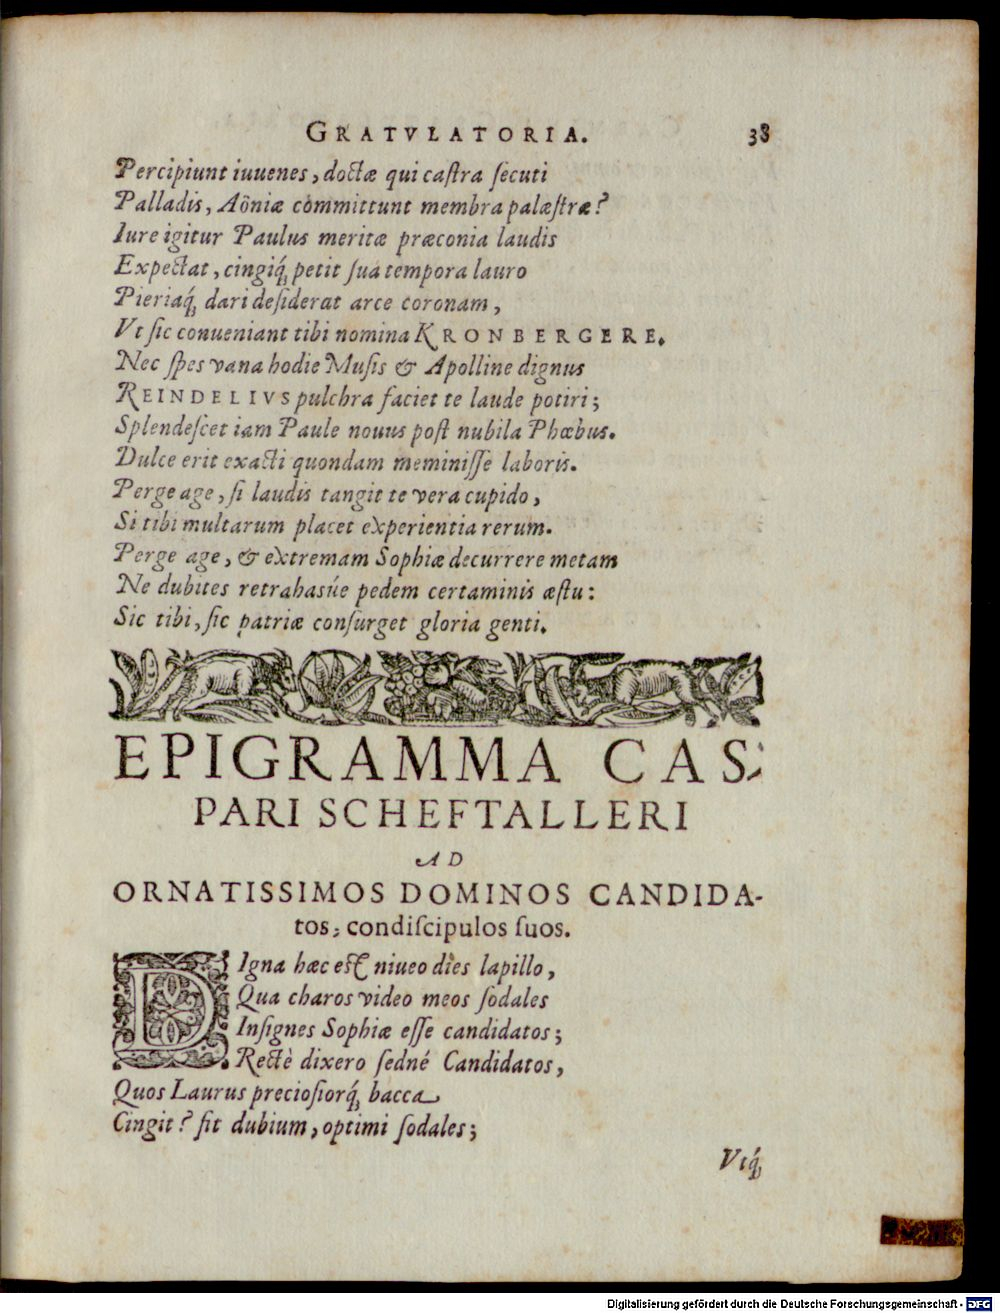 GRATVLATORIA. 38
Percipiunt iuuenes, doctæ qui caſtra ſecuti
Palladis, Aôniæ cómmittunt membra palæſtræ?
Iure igitur Paulus meritæ præconia laudis
Expectat, cingiq́; petit ſua tempora lauro
Pieriaq́; dari deſiderat arce coronam,
Vt ſic conueniant tibi nomina KRONBERGERE.
Nec ſpes vana hodie Muſis & Apolline dignus
REINDELIVS pulchra faciet te laude potiri;
Splendeſcet iam Paule nouus poſt nubila Phœbus.
Dulce erit exacti quondam meminiſſe laboris.
Perge age, ſi laudis tangit te vera cupido,
Si tibi multarum placet experientia rerum.
Perge age, & extremam Sophiæ decurrere metam
Ne dubites retrahasúe pedem certaminis æſtu:
Sic tibi, ſic patriæ conſurget gloria genti.
EPIGRAMMA CAS-
PARI SCHEFTALLERI
AD
ORNATISSIMOS DOMINOS CANDIDA-
tos, condiſcipulos ſuos.
DIgna hæc eſt niueo dies lapillo,
Qua charos video meos ſodales
Inſignes Sophiæ eſſe candidatos;
Rectè dixero ſedné Candidatos,
Quos Laurus precioſiorq́; bacca
Cingit? ſit dubium, optimi ſodales;
Vtq́;
Digitalisierung gefördert durch die Deutsche Forschungsgemeinschaft - DFG